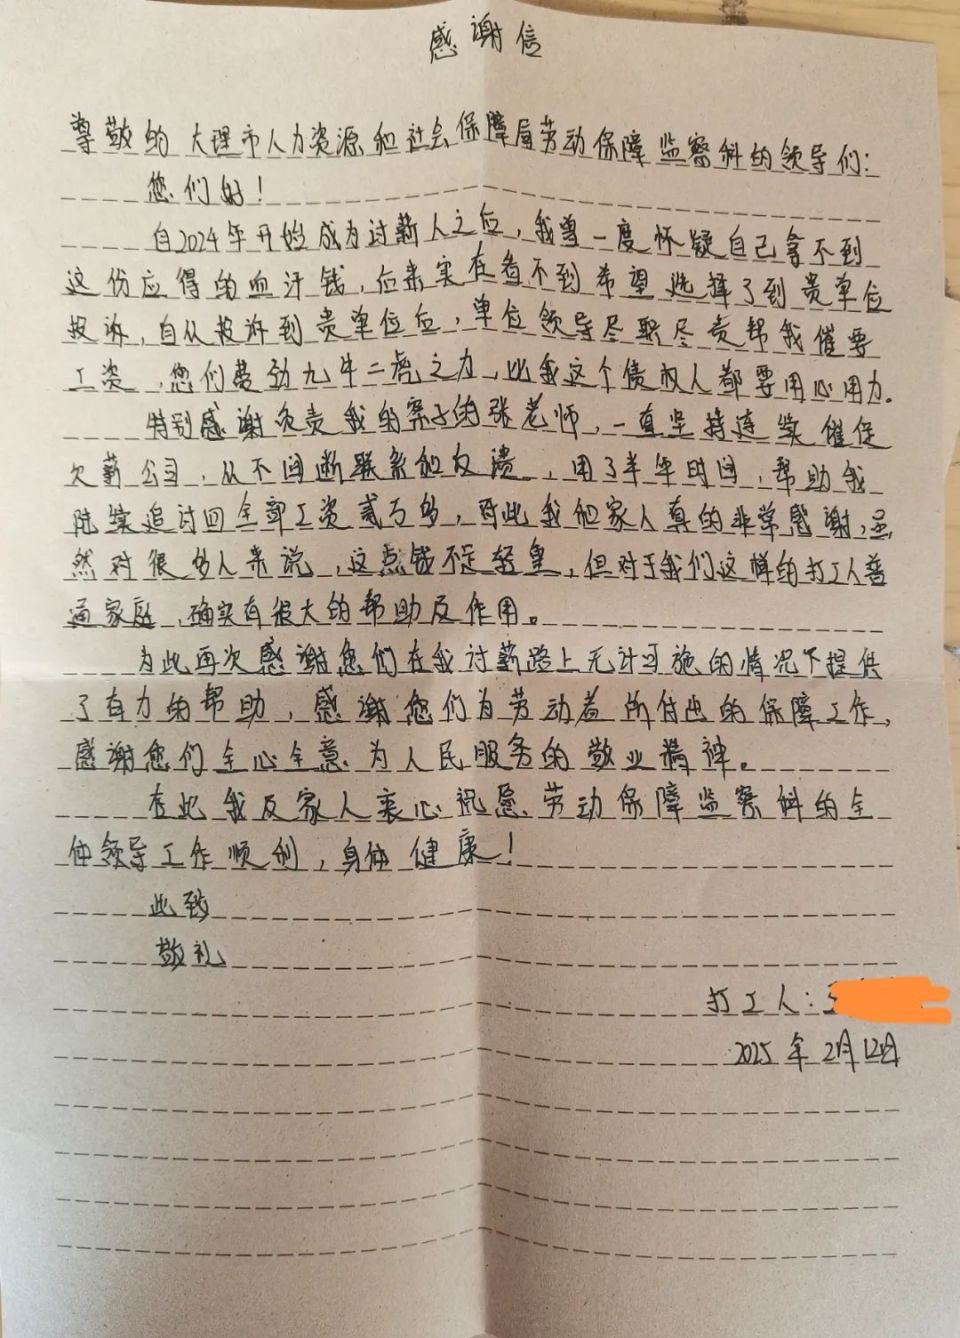 感谢信
尊敬的大理市人力资源和社会保障局劳动保障监察科的领导们：
您们好！
自2024年开始成为讨薪人之后，我曾一度怀疑自己拿不到
这份应得的血汗钱，后来实在看不到希望选择了到贵单位
投诉，自从投诉到贵单位后，单位领导尽职尽责帮我催要
工资，您们费劲九牛二虎之力，比我这个债权人都要用心用力。
特别感谢负责我的案子的张老师，一直坚持连续催促
欠薪公司，从不间断联系和反馈，用了半年时间，帮助我
陆续追讨回全部工资贰万多，对此我和家人真的非常感谢，虽
然对很多人来说，这点钱不足轻重，但对于我们这样的打工人普
通家庭，确实有很大的帮助及作用。
为此再次感谢您们在我讨薪路上无计可施的情况下提供
了有力的帮助，感谢您们为劳动者所付出的保障工作，
感谢您们全心全意为人民服务的敬业精神。
在此我及家人衷心祝愿劳动保障监察科的全
体领导工作顺利，身体健康！
此致
敬礼
打工人：
2025年2月12日